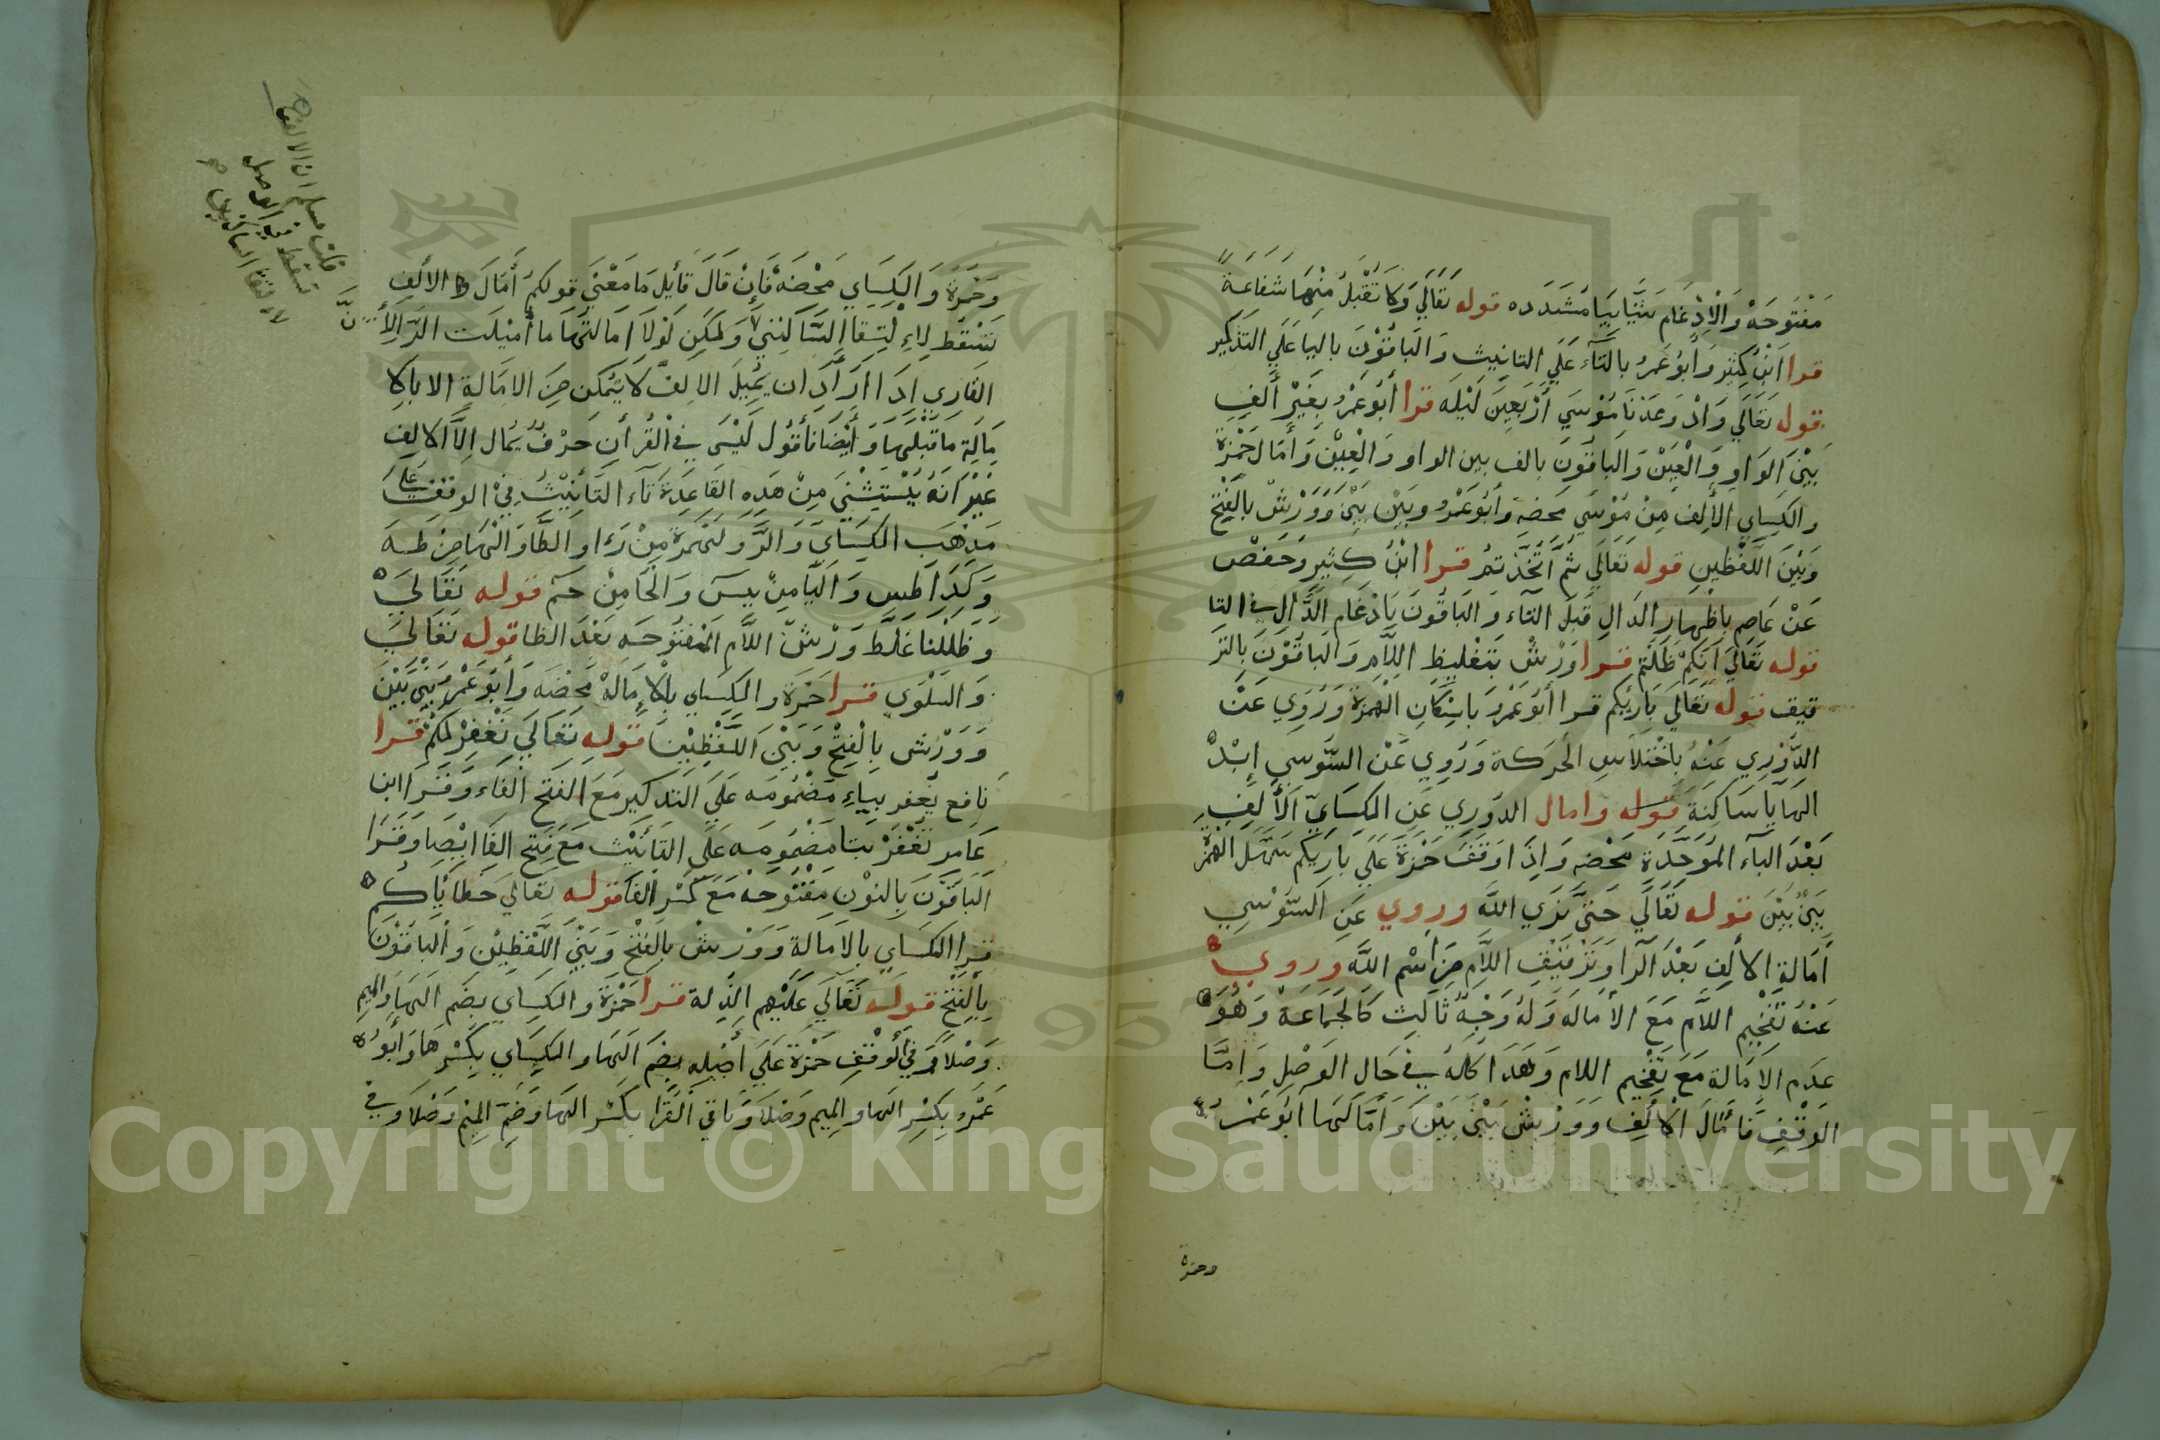 مَفْتُوحَهْ وَالْاِدْغَام يَثْنَّايَيَا مشَدَده قوله تَعَالَي وَلَا تُقْبَلُ مِنْهَا شَفَاعَةً
قرا ابْنُ كَثِيرٍ وَأَبُو عَمْرُ بالتَّآء عَلَي التانيث وَالبَاقُوْنَ باليا عَلَي التَذْكير
قوله تَعَالَي وَاذْ وَعدْنَا مُوْسَي اَرْبَعِيَن لَيْلَه قرا أَبُو عَمْرُ بِغَيْرِ أَلفِ
بَيْنَ الوَاوِ وَالْعَيْنْ وَالبَاقُونَ بالف بين الواو وَالْعَيْنْ وَأَمَال حَمْزةْ
والكِسَايِ الأَلِف مِنْ مُوْسَي مَحضه وَأَبُو عَمْرُ وبَيْن بَيْن وَوَرْشْ بالْفَتْح
وَبَيْنَ اللَّفْظَينِ قوله تعَالَي ثُمَّ اتَّخَّذتمُ قرا ابْنُ كِثيرٍ وَحَفصْ
عَنْ عَاصِم بِاظْهارِ الدَالِ قَبْلَ التآء وَالبَاقُونَ بَادْغَام الدَّالِ في التا
قوله تعَالَي انَكمْ ظَلَمْتم قرا وَرْشْ بَتغْلِيظِ اللَّامِ وَالبَاقُوْنَ بِالتر
قيق قوله تَعَالَي بَارِيِكم قرا أَبُو عَمْرُ باسْكَانِ الهَمزة وَرُوِي عَنْ
الدَّوْرِي عَنْهُ بِاخْتلاَسِ الحَركة وَرُوِي عَنْ السَّوسِي إِبْدْ
الهَايَا سَاكِنَةَ قوله وامال الدوَرِي عَنِ الكِسَايِّ اَلأَلِفِ
بَعْدَ البآء المُوَحَّدةِ مَحْضه وَاِذَا وَقَفَ حَمْزةَ عَلَي بارِيكم سَهَّل الهَمْزَ
بَيْن بَيْنَ قوله تَعَالَي حَتَّي نَرَي اللَّه وروي عَنِ السَّوْسِي
أَمَالةِ الأَلِفِ بَعْدَ الرا وَتَرْقيْقِ اللَّامِ مِنِ اَسْم اللَّه وروي
عَنْهُ تَفْخْيِم اللاَّم مَعَ الأَمالَه وَلهُ وَجْهٌ ثَالِث كَالجَماعَة وَهُوَ
عَدَم الإَمَالَة مَعَ تَفْخِيم اللام وَهَذَا كلهُ في حَالِ الوَصْلِ وَاِمَّا
الوَقْفِ فَأَمَّالَ الأَلِفِ وَوَرْشْ بَيْن بَيْنَ وَأَمَّالَهَا اَبُو عَمْرُ
وحمزة
وَحَمْزةُ وَالكِسَايِ مَحْضَهْ فَاِنْ قَالَ قَآيِلَ مَا مَعْنَي قولكمُ أَمَالَ الألِفِ
تَسْقطُ لِاِلْتِقا السَّاكنَيْنِ وَلَكَنِ لَوْلَا اِمَالتُهَا ما أُمِيْلَت الرَّا لأَنَّ
القَارِي اِذَا ارَادَ ان يُمِيلَ الالفَ لَا يَتَمكَن مِنَ الامَالةِ الا بالا
مَالَةِ مَاقَبْلَهَا وَأَيْضَا فأَقُول لَيْسَ في القُرأنِ حَرْفٌ يُمال اِلَّا الالِف
غَيْرَ اَنَهُ يُسْتَثْنَي مِنْ هَذِهِ القَاعِدَة تَآء التَأنيْثُ فِيْ الوقف عَلَي
مَذْهَب الكِسَايِ وَالرَّ وَلهَمَزة مِنْ رَءا وَالطَّا وَالهَا مِنْ طَهَ
وَكَذَا طس وَاليَا مِنْ يسَ وَالحَا مِنْ حَم قوله تعَالَيْ
وَظَلَلْنا غَلَّظ وَرْشْ اللاَّم المَفتُوحَه بَعْدَ الظا قوله تعَالَي
وَالسَلْوَي قرا حَمْزة والكِسَايِ بِالْاِمَالَهْ مَحْضَه وَأَبُو عَمْرُ بَيْن بَيْنَ
وَوَرْش بِالْفِتْحْ وَبَيْنَ اللَّفْظَيْنِ قوله تعَالَي نَغْفِرْ لَكمْ قرا
نَافِع يَغفر بيَاءِ مَضْمُومَه عَلَي التَذكِيرِ مَعَ الفَتح الفَاء وَقَرَا ابن
عَامرِ تَغْفَرْ بتا مَضْمُومَه عَلَي التَأنيث مَعَ فَتح الفا ايْضا وَقَرَا
البَاقَوْنَ بِالنوْنِ مفْتُوحَهْ مَعَ كسْر الفا قوله تعالَي خطاَيَاكُم
قرا الكسَايِ بالاَمالة وَوَرْش بالفَتْحْ وَبَيْنَ اللَّفْظِيْن وَالبَاقُوْنَ
بِالْفَتْح قوله تعَالَي عَلَيْهِم الذِّلة قرا حَمْزة والكِسَايِ بضَم الهَا وَالميم
وَصْلَا وَفي الْوقفِ حَمْزة عَلَيَ أَصْلِه بِضَم الهَا والكِسَايِ بِكَسْرِ هَا وَأَبُو
عَمْرُ بِكَسْرِ الهَا والمِيم وَصْلاَ وَبَاقيِ القُرَّا بِكَسْر الهَا وَضَمّ المِيْم وَصْلَا وَفيْ
قلت مسلم ان الالف
تسقط في الوصل
لالتقا الساكنين